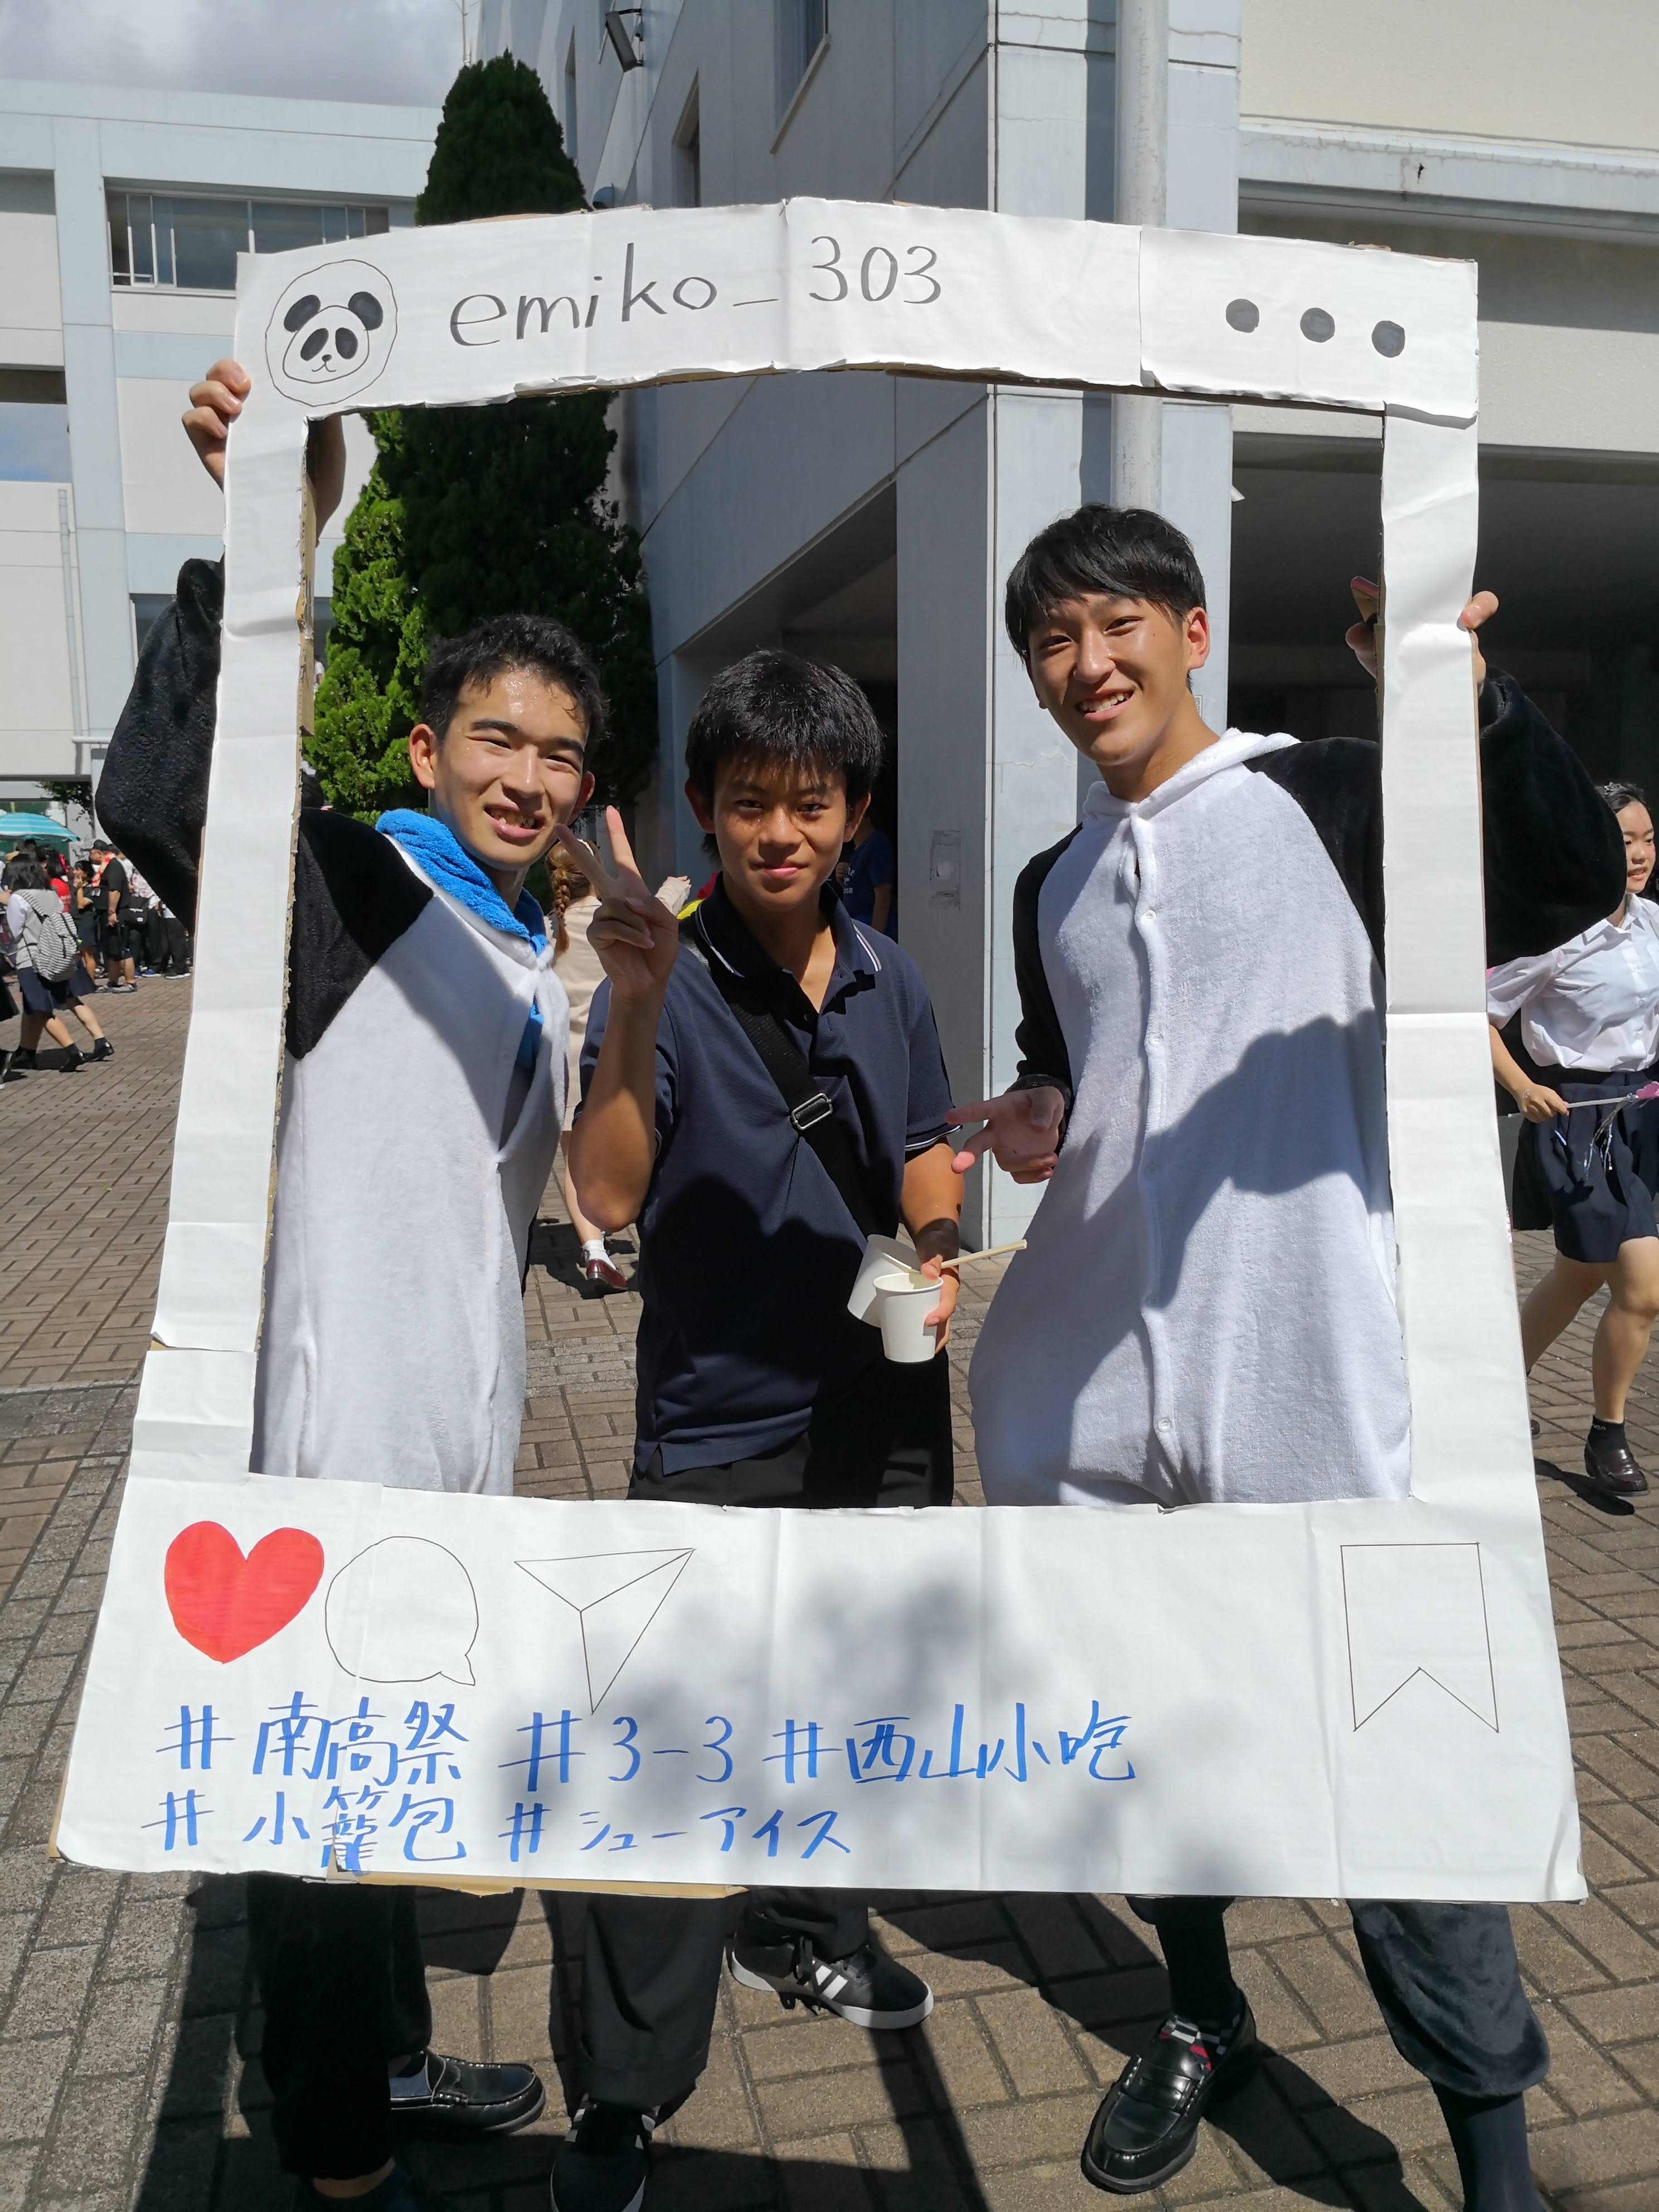 emiko_303
#南高祭 #3-3 #西山小吃
#小籠包 #シューアイス